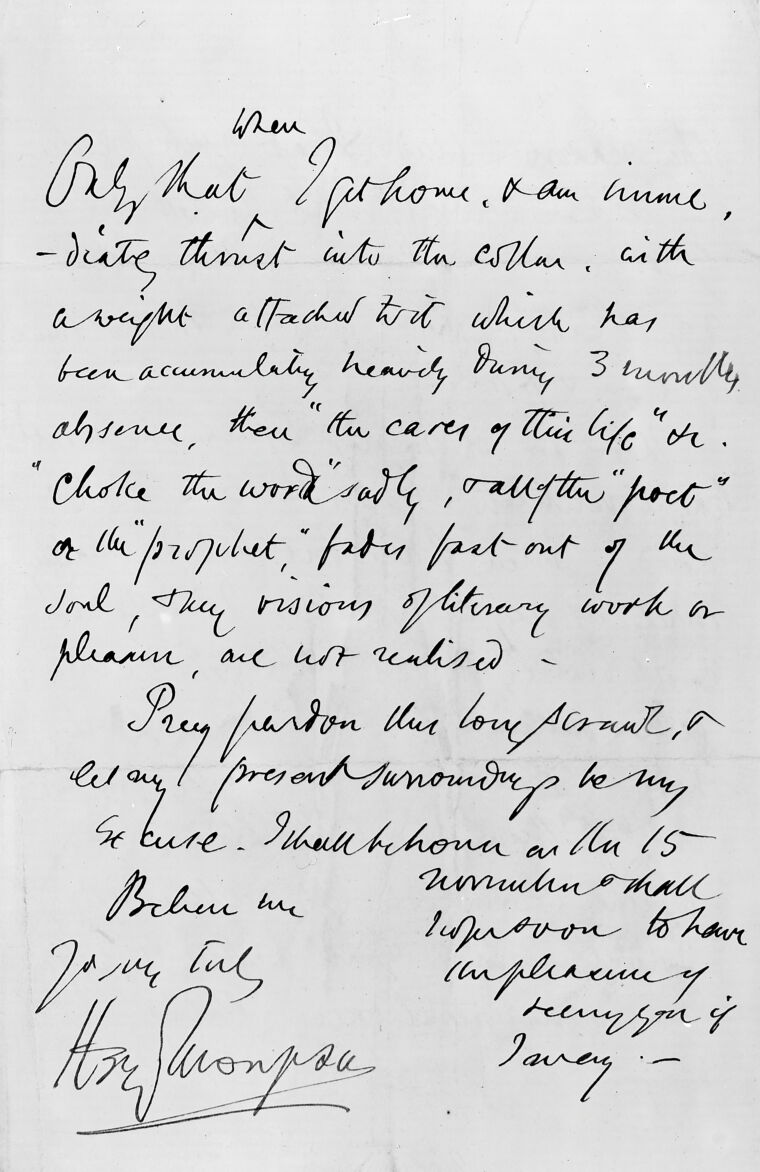 when
Only that ^ I get home, & am imme,
-diately thrust into the collar, with
a weight attached to it which has
been accumulating heavily during 3 months
absence, then "the cares of this life" &c.
"choke the word" sadly, & all of the "poet"
or the "prophet," fades fast out of the
soul, & my visions of literary work or
pleasure, are not realised -
Pray pardon this long scrawl, &
let my present surroundings be my
excuse. I shall be home on the 15
November & shall
hope soon to have
the pleasure of
seeing you if
I may. -
Believe me
Yrs very truly
Hy Thompson